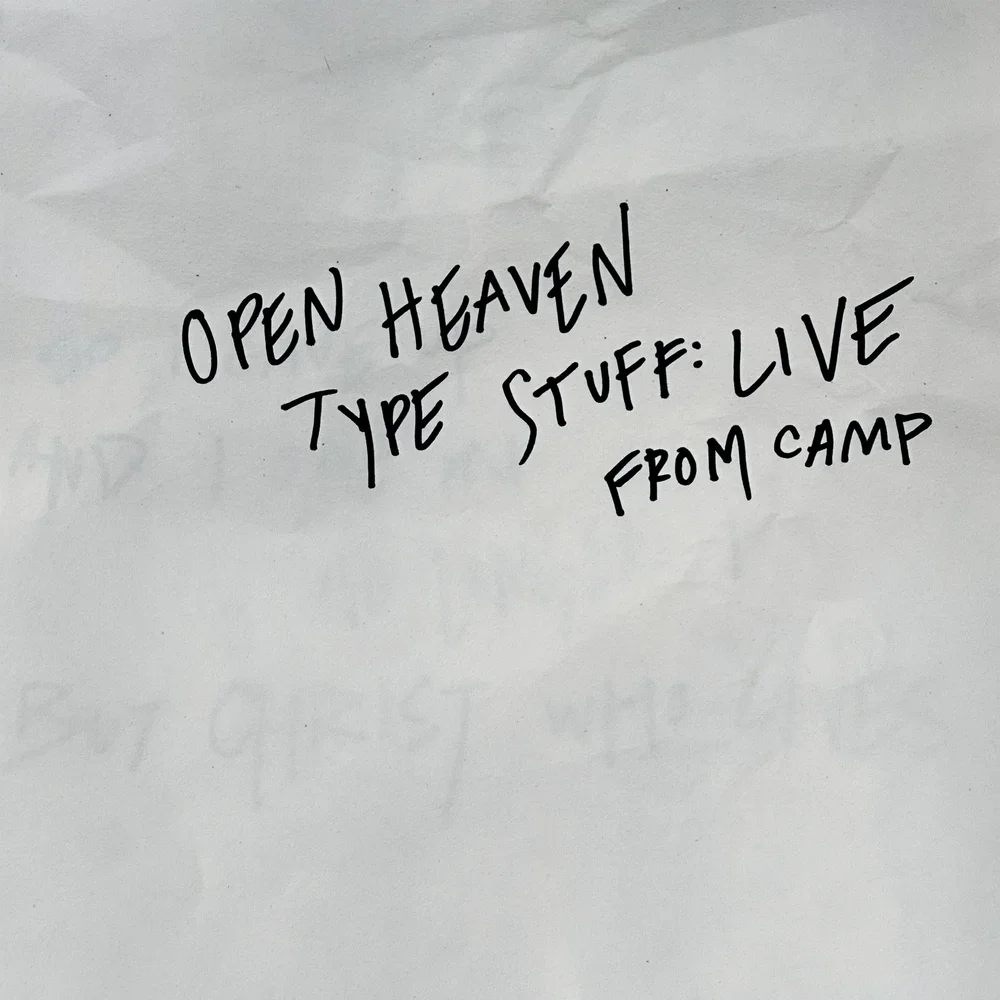 OPEN HEAVEN
TYPE STUFF: LIVE
FROM CAMP
AND I
BUT CHRIST WHO